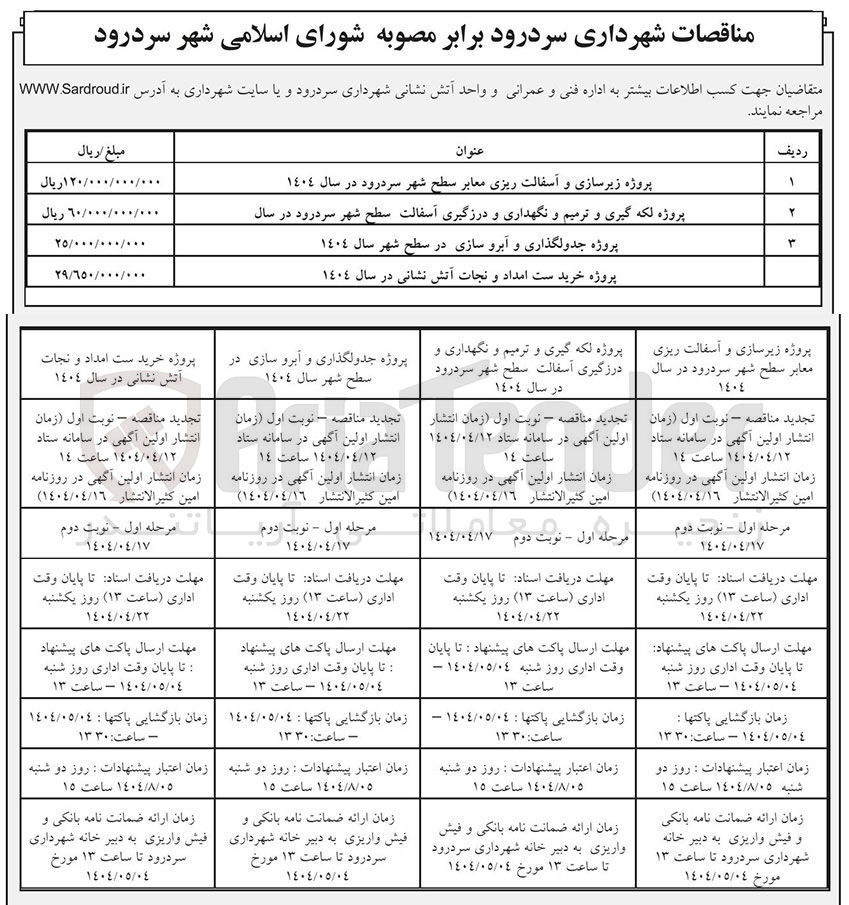 مناقصات شهرداری سردرود برابر مصوبه شورای اسلامی شهر سردرود
متقاضیان جهت کسب اطلاعات بیشتر به اداره فنی و عمرانی و واحد آتش نشانی شهرداری سردرود و یا سایت شهرداری به آدرس WWW.Sardroud.ir
مراجعه نمایند.
ردیف عنوان مبلغ/ریال
۱ پروژه زیرسازی و آسفالت ریزی معابر سطح شهر سردرود در سال ۱۴۰۴ ۱۲۰/۰۰۰/۰۰۰/۰۰۰ریال
۲ پروژه لکه گیری و ترمیم و نگهداری و درزگیری آسفالت سطح شهر سردرود در سال ۶۰/۰۰۰/۰۰۰/۰۰۰ ریال
۳ پروژه جدولگذاری و آبرو سازی در سطح شهر سال ۱۴۰۴ ۲۵/۰۰۰/۰۰۰/۰۰۰
پروژه خرید ست امداد و نجات آتش نشانی در سال ۱۴۰۴ ۲۹/۶۵۰/۰۰۰/۰۰۰
پروژه زیرسازی و آسفالت ریزی
معابر سطح شهر سردرود در سال
۱۴۰۴
پروژه لکه گیری و ترمیم و نگهداری و
درزگیری آسفالت سطح شهر سردرود
در سال ۱۴۰۴
پروژه جدولگذاری و آبرو سازی در
سطح شهر سال ۱۴۰۴
پروژه خرید ست امداد و نجات
آتش نشانی در سال ۱۴۰۴
تجدید مناقصه – نوبت اول (زمان
انتشار اولین آگهی در سامانه ستاد
۱۴۰۴/۰۴/۱۲ ساعت ۱۴
زمان انتشار اولین آگهی در روزنامه
امین کثیرالانتشار ۱۴۰۴/۰۴/۱۶)
تجدید مناقصه – نوبت اول (زمان انتشار
اولین آگهی در سامانه ستاد ۱۴۰۴/۰۴/۱۲
ساعت ۱۴
زمان انتشار اولین آگهی در روزنامه
امین کثیرالانتشار ۱۴۰۴/۰۴/۱۶)
تجدید مناقصه – نوبت اول (زمان
انتشار اولین آگهی در سامانه ستاد
۱۴۰۴/۰۴/۱۲ ساعت ۱۴
زمان انتشار اولین آگهی در روزنامه
امین کثیرالانتشار ۱۴۰۴/۰۴/۱۶)
تجدید مناقصه – نوبت اول (زمان
انتشار اولین آگهی در سامانه ستاد
۱۴۰۴/۰۴/۱۲ ساعت ۱۴
زمان انتشار اولین آگهی در روزنامه
امین کثیرالانتشار ۱۴۰۴/۰۴/۱۶)
مرحله اول - نوبت دوم
۱۴۰۴/۰۴/۱۷
مرحله اول - نوبت دوم ۱۴۰۴/۰۴/۱۷
مرحله اول - نوبت دوم
۱۴۰۴/۰۴/۱۷
مرحله اول - نوبت دوم
۱۴۰۴/۰۴/۱۷
مهلت دریافت اسناد: تا پایان وقت
اداری (ساعت ۱۳) روز یکشنبه
۱۴۰۴/۰۴/۲۲
مهلت دریافت اسناد: تا پایان وقت
اداری (ساعت ۱۳) روز یکشنبه
۱۴۰۴/۰۴/۲۲
مهلت دریافت اسناد: تا پایان وقت
اداری (ساعت ۱۳) روز یکشنبه
۱۴۰۴/۰۴/۲۲
مهلت دریافت اسناد: تا پایان وقت
اداری (ساعت ۱۳) روز یکشنبه
۱۴۰۴/۰۴/۲۲
مهلت ارسال پاکت های پیشنهاد:
تا پایان وقت اداری روز شنبه
۱۴۰۴/۰۵/۰۴ – ساعت ۱۳
مهلت ارسال پاکت های پیشنهاد : تا پایان
وقت اداری روز شنبه ۱۴۰۴/۰۵/۰۴ –
ساعت ۱۳
مهلت ارسال پاکت های پیشنهاد
: تا پایان وقت اداری روز شنبه
۱۴۰۴/۰۵/۰۴ – ساعت ۱۳
مهلت ارسال پاکت های پیشنهاد
: تا پایان وقت اداری روز شنبه
۱۴۰۴/۰۵/۰۴ – ساعت ۱۳
زمان بازگشایی پاکتها :
۱۴۰۴/۰۵/۰۴ – ساعت: ۳۰ ۱۳
زمان بازگشایی پاکتها : ۱۴۰۴/۰۵/۰۴ –
ساعت: ۳۰ ۱۳
زمان بازگشایی پاکتها : ۱۴۰۴/۰۵/۰۴
– ساعت: ۳۰ ۱۳
زمان بازگشایی پاکتها : ۱۴۰۴/۰۵/۰۴
– ساعت: ۳۰ ۱۳
زمان اعتبار پیشنهادات : روز دو
شنبه ۱۴۰۴/۸/۰۵ ساعت ۱۵
زمان اعتبار پیشنهادات : روز دو شنبه
۱۴۰۴/۸/۰۵ ساعت ۱۵
زمان اعتبار پیشنهادات : روز دو شنبه
۱۴۰۴/۸/۰۵ ساعت ۱۵
زمان اعتبار پیشنهادات : روز دو شنبه
۱۴۰۴/۸/۰۵ ساعت ۱۵
زمان ارائه ضمانت نامه بانکی
و فیش واریزی به دبیر خانه
شهرداری سردرود تا ساعت ۱۳
مورخ ۱۴۰۴/۰۵/۰۴
زمان ارائه ضمانت نامه بانکی و فیش
واریزی به دبیر خانه شهرداری سردرود
تا ساعت ۱۳ مورخ ۱۴۰۴/۰۵/۰۴
زمان ارائه ضمانت نامه بانکی و
فیش واریزی به دبیر خانه شهرداری
سردرود تا ساعت ۱۳ مورخ
۱۴۰۴/۰۵/۰۴
زمان ارائه ضمانت نامه بانکی و
فیش واریزی به دبیر خانه شهرداری
سردرود تا ساعت ۱۳ مورخ
۱۴۰۴/۰۵/۰۴
AriaTender
زنجیره معاملاتی آریاتندر